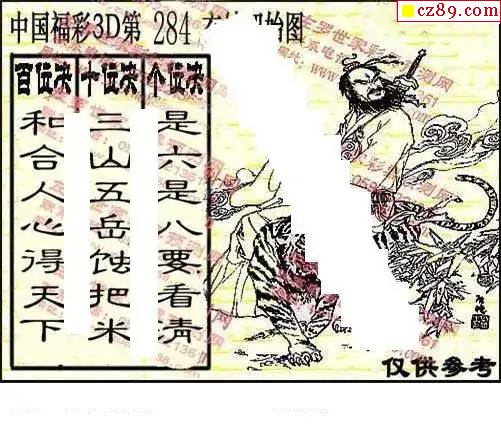 cz89.com
中国福彩3D第 284
百位决 十位决 个位决
和合人心得天下
三山五岳蚀把米
是六是八要看清
仅供参考